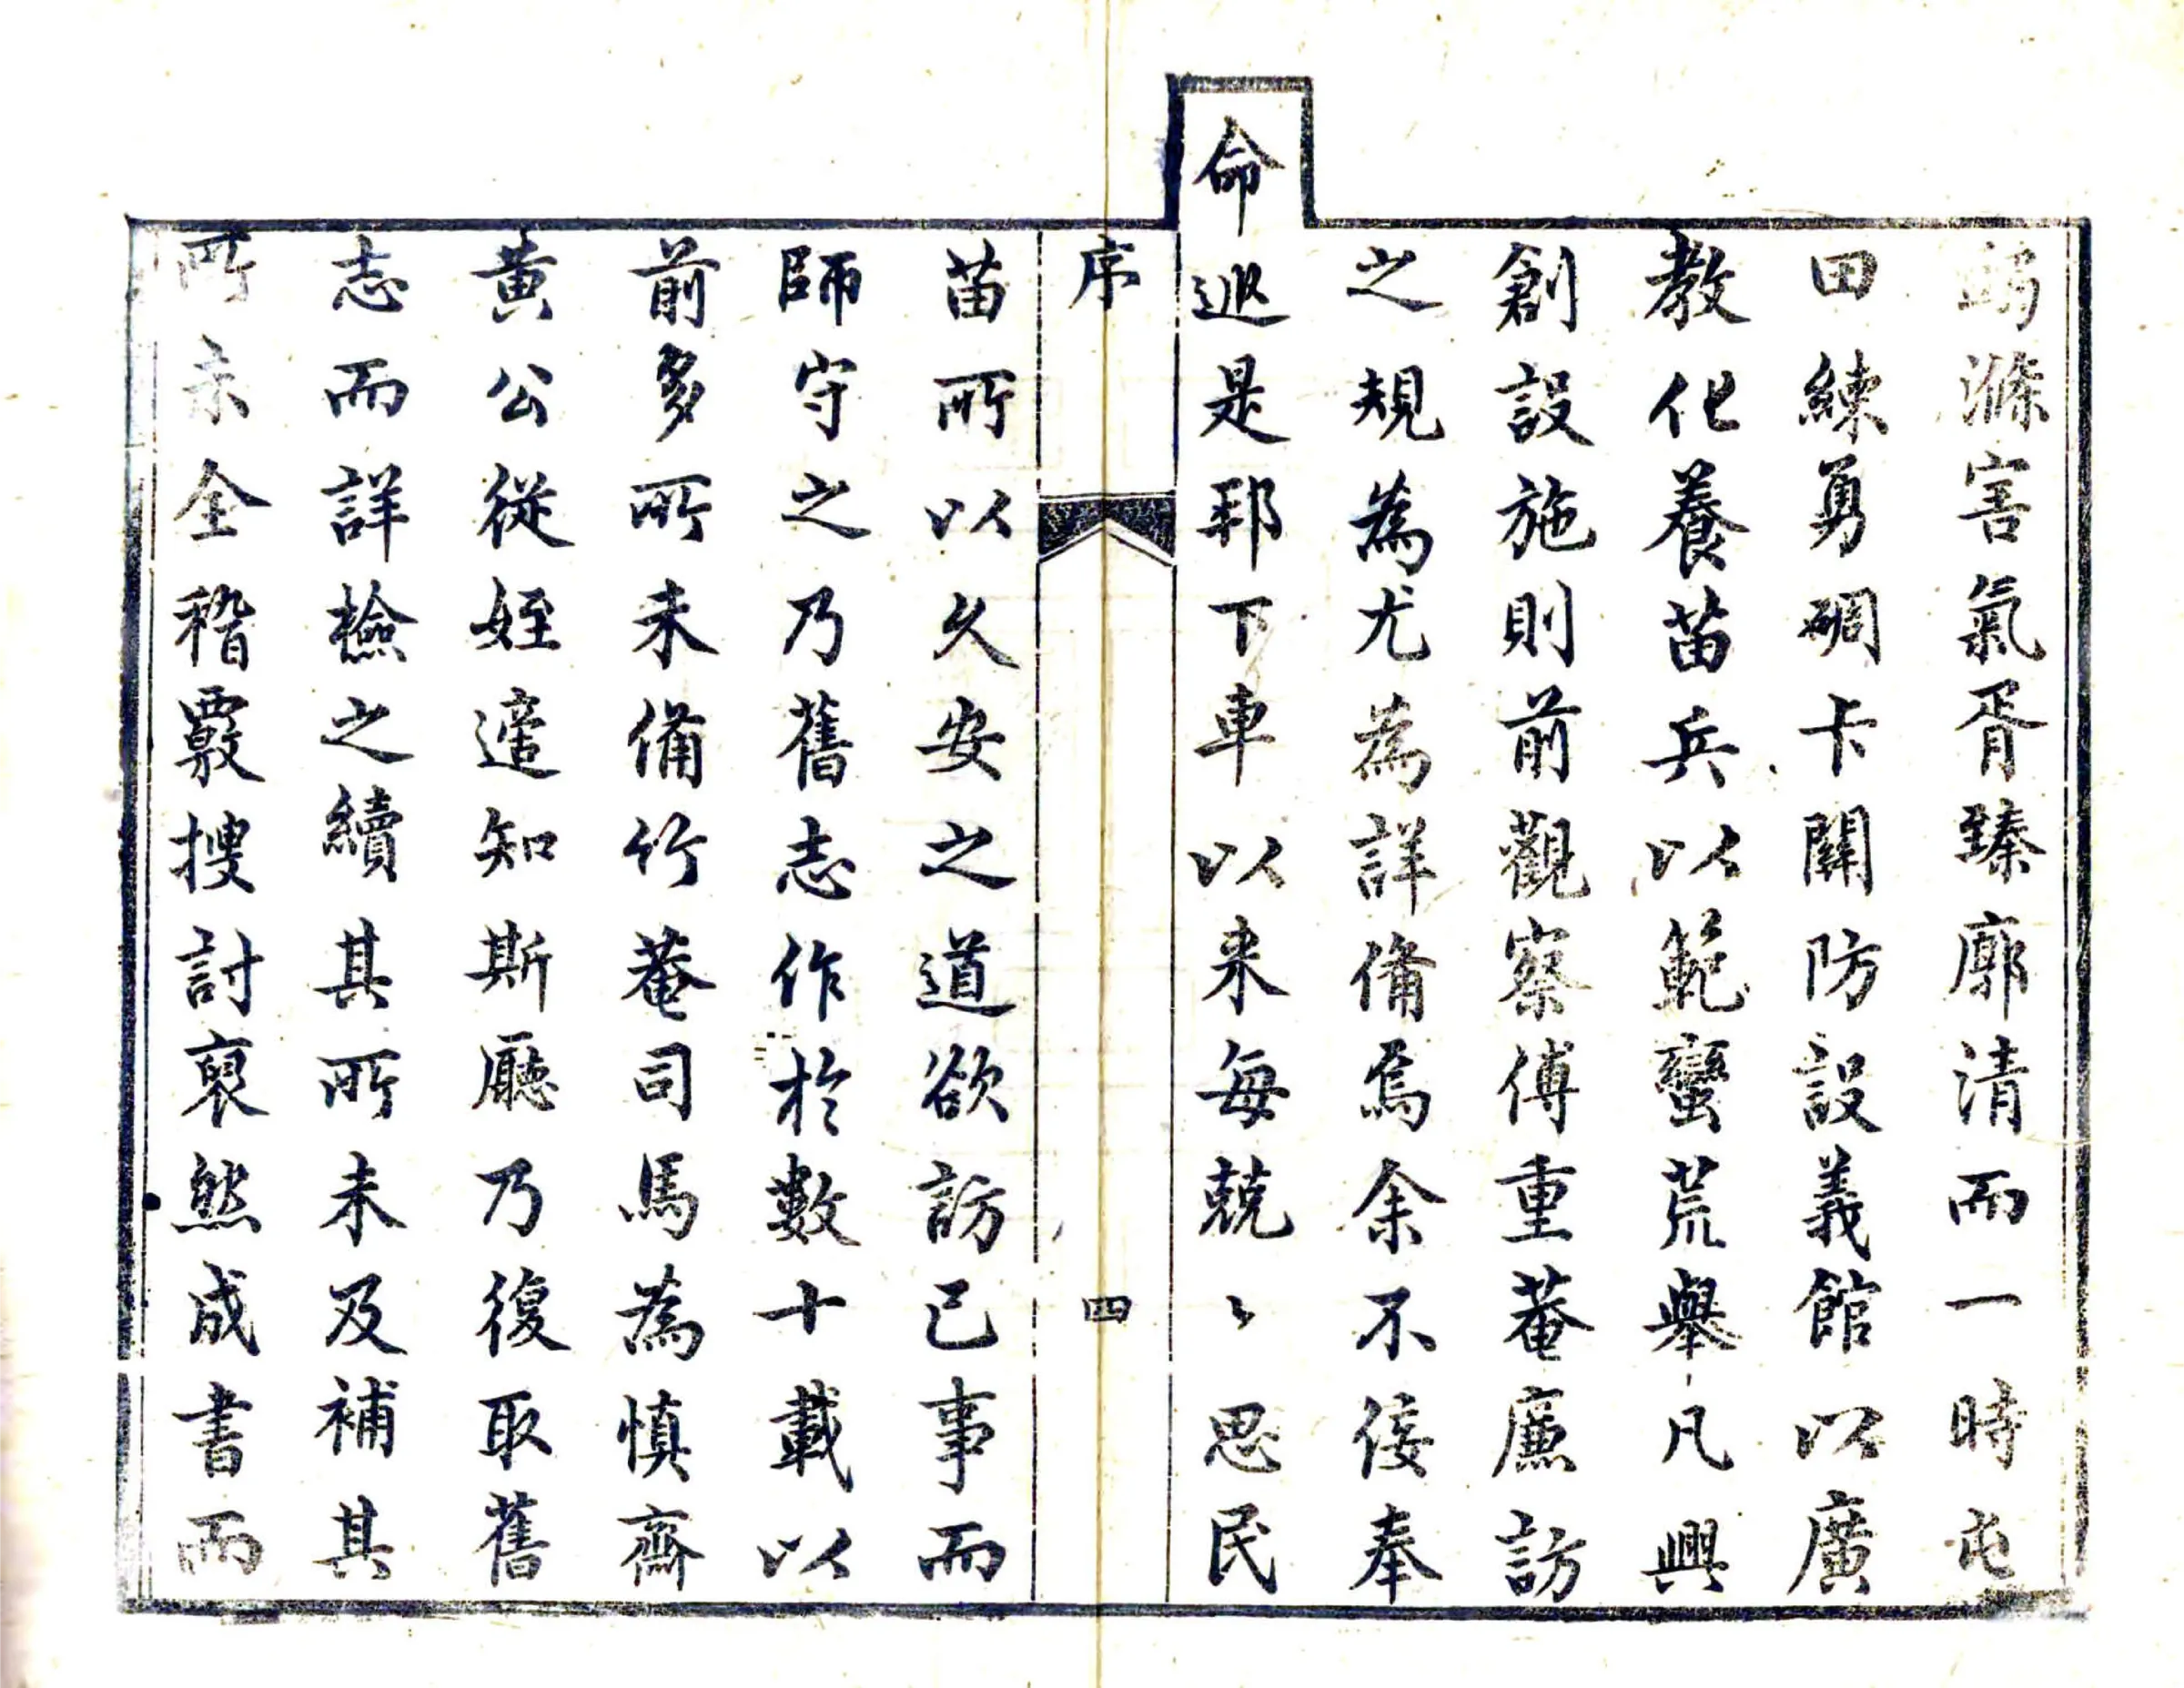 滌害氣胥臻廓清而一時屯
田練勇碉卡關防設義館以廣
教化養苗兵以範蠻荒舉凡興
創設施則前觀察傅重菴廉訪
之規為尤為詳備焉余不佞奉
命巡是邦下車以来每兢〻思民
序 四
苗所以久安之道欲訪已事而
師守之乃舊志作於數十載以
前多所未備竹菴司馬為慎齋
黄公從姪適知斯廳乃復取舊
志而詳檢之續其所未及補其
所未全稽覈搜討裒然成書而